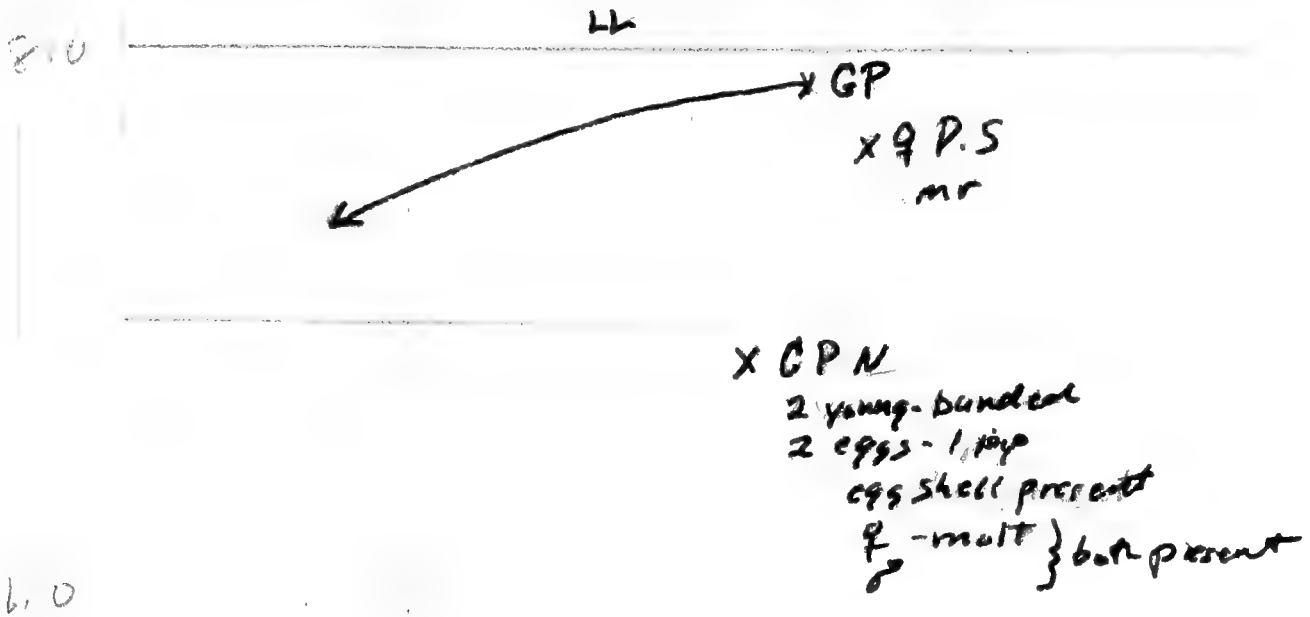 LL
8.0
x GP
x ♀ D.S
mr
x GPN
2 young-banded
2 eggs - 1 pip
egg shell present
♀ - molt } both present
♂
6.0